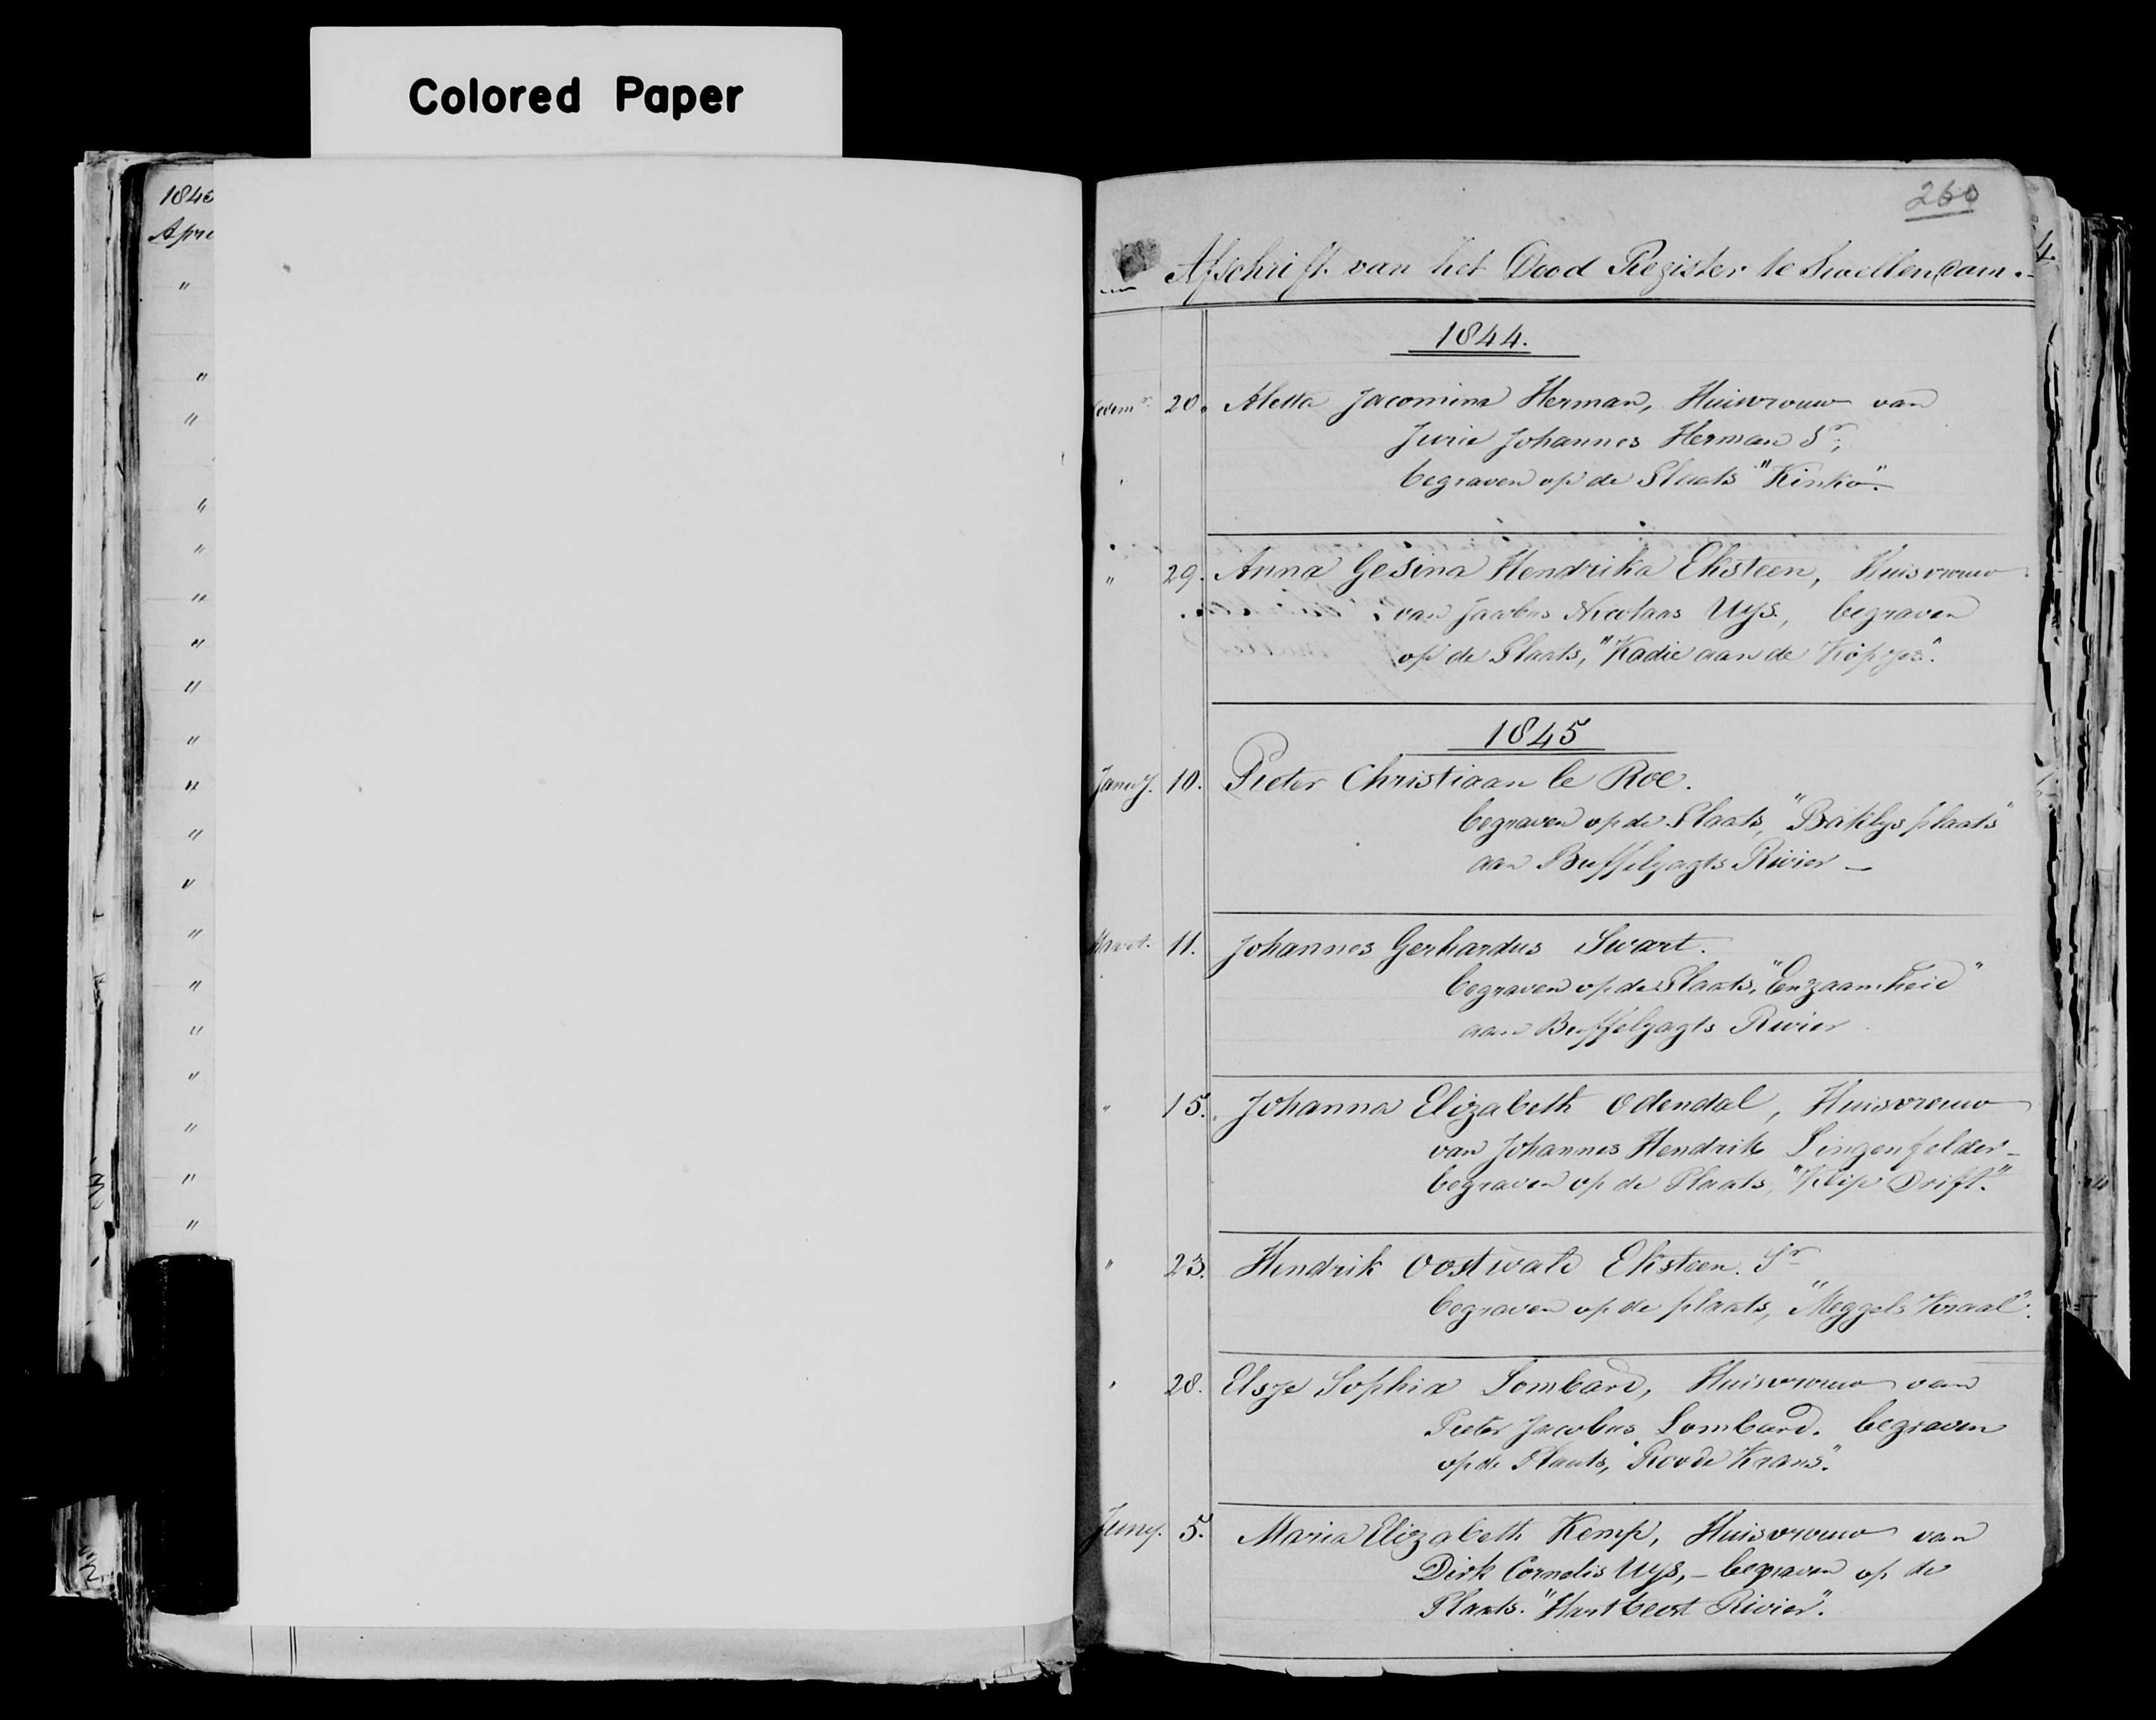 Colored Paper
184
Apri
"
"
"
"
"
"
"
"
"
"
"
"
"
"
"
"
"
"
"
"
260
Afschrift van het Dood Register te Swellendam.
1844.
Novemr. 20. Aletta Jacomina Herman, Huisvrouw van
Jurie Johannes Herman Sr,
begraven op de Plaats "Kinko".
" 29. Anna Gesina Hendrika Eksteen, Huisvrouw
van Jacobus Nicolaas Uys, begraven
op de Plaats, "Kadie aan de Kopjes".
1845
Januy. 10. Pieter Christiaan le Roe.
begraven op de Plaats, "Baklysplaats"
aan Buffeljagts Rivier –
Maart. 11. Johannes Gerhardus Swart.
begraven op de Plaats, "Eenzaamheid"
aan Buffeljagts Rivier
" 15. Johanna Elizabeth Odendal, Huisvrouw
van Johannes Hendrik Lingenfelder –
begraven op de Plaats, "Klip Drift."
" 23. Hendrik Oostwald Eksteen. Sr
begraven op de plaats, "Meggels Kraal".
" 28. Elsje Sophia Lombard, Huisvrouw van
Pieter Jacobus Lombard. begraven
op de Plaats, "Roode Krans".
Juny. 5. Maria Elizabeth Kemp, Huisvrouw van
Dirk Cornelis Uys, – begraven op de
Plaats. "Hartbeest Rivier".